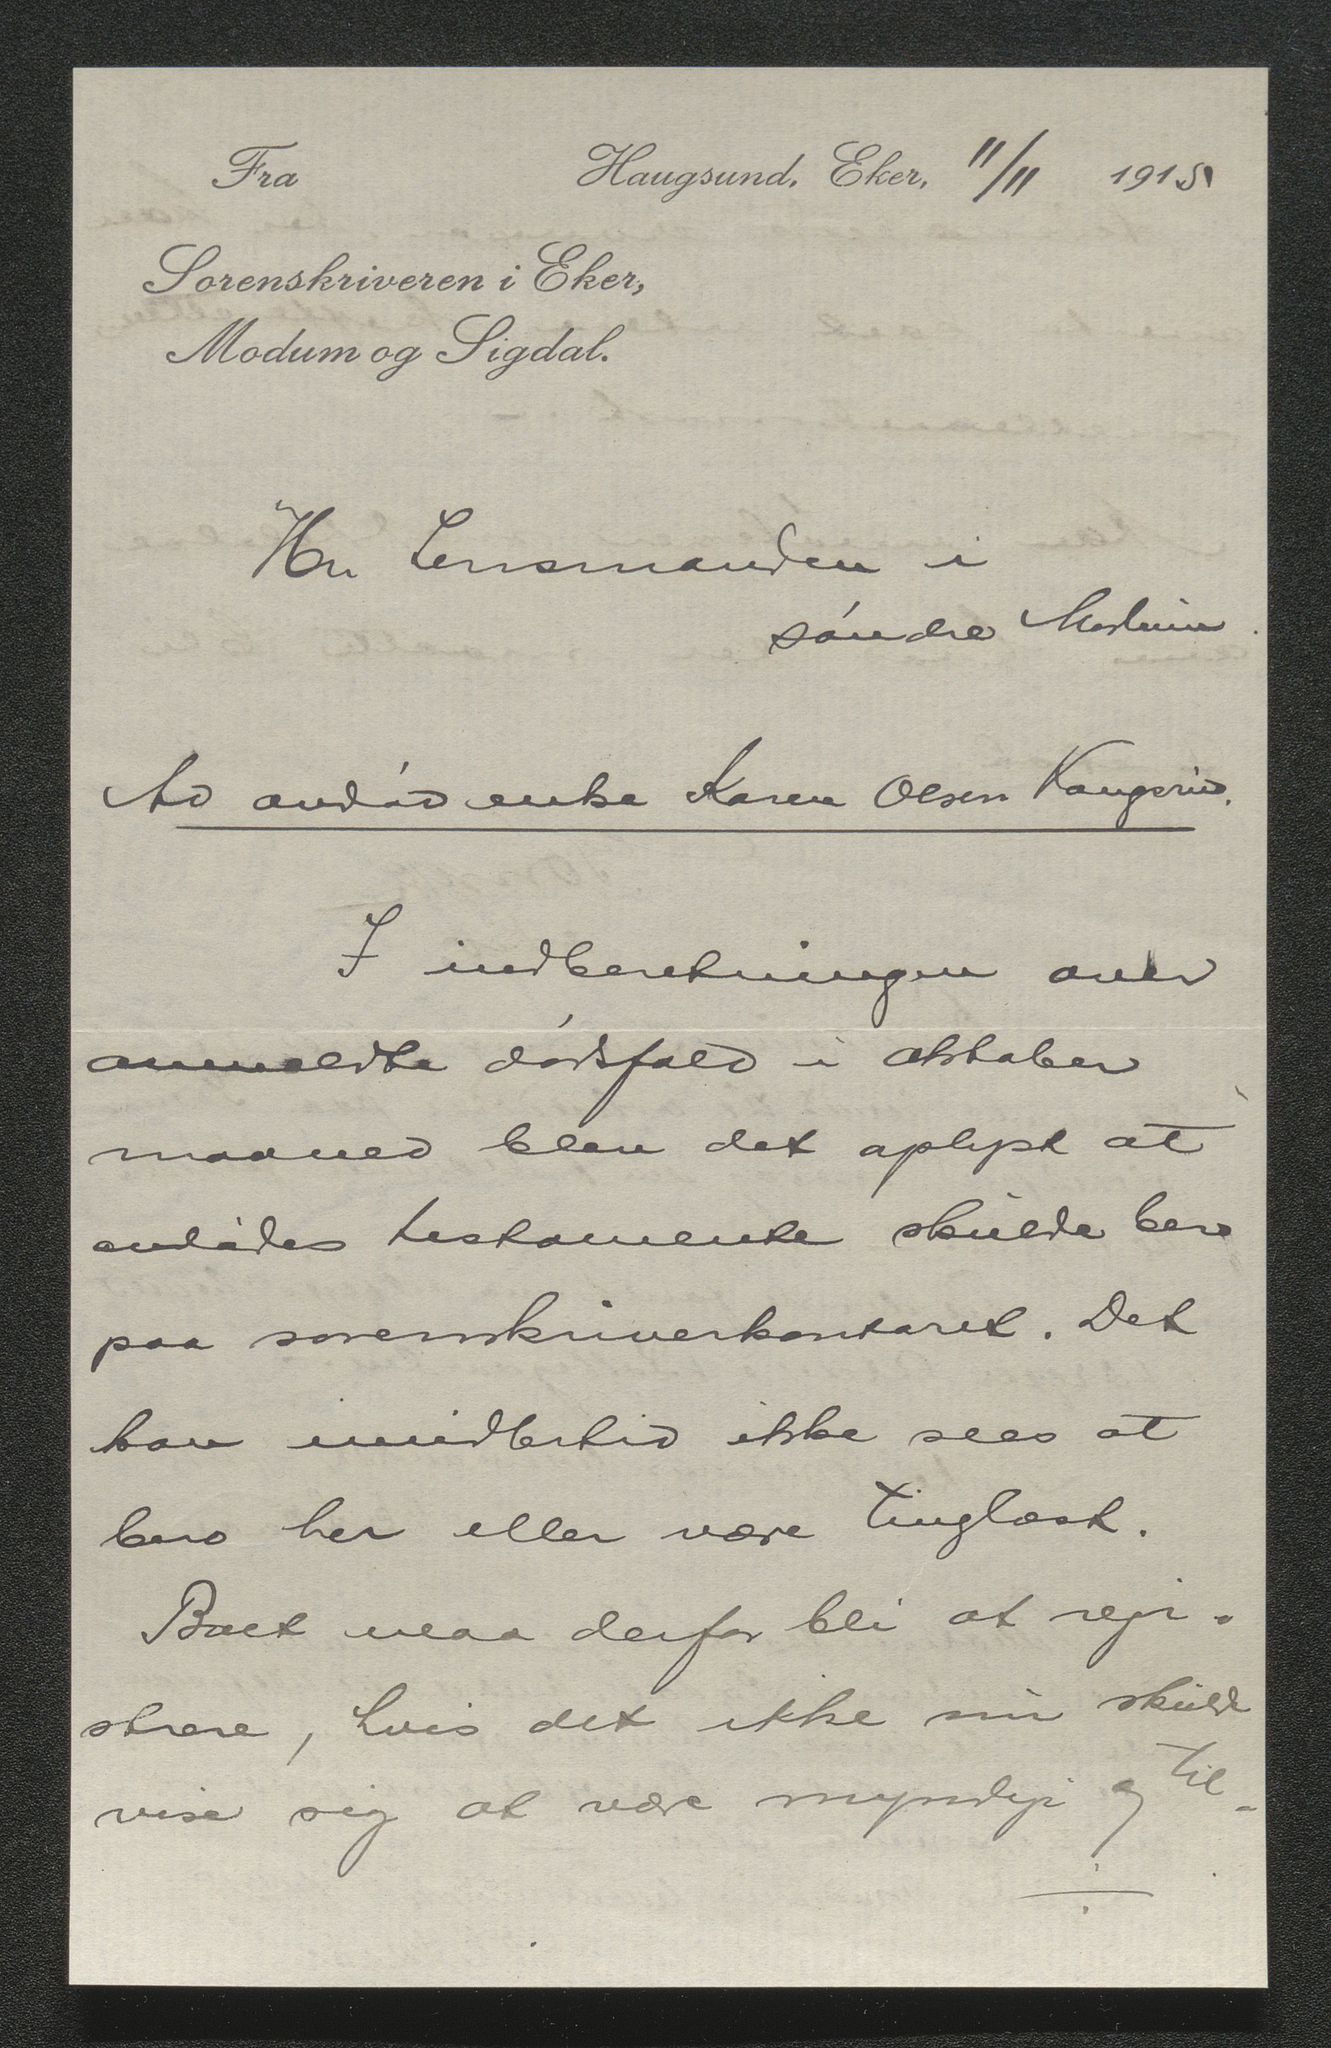 Fra Haugsund, Eker, 11/11 1915
Sorenskriveren i Eker,
Modum og Sigdal.
Hr. Lensmanden i
søndre Modum.
Ad avdød enke Karen Olsen Kongsrud.
I indberetningen over
anmeldte dødsfald i oktober
maaned blev det oplyst at
avdødes testamente skulde bero
paa sorenskriverkontoret. Det
kan imidlertid ikke sees at
bero her eller være tinglæst.
Boet maa derfor bli at regi-
strere, hvis det ikke nu skulde
vise sig at være myndige og til-